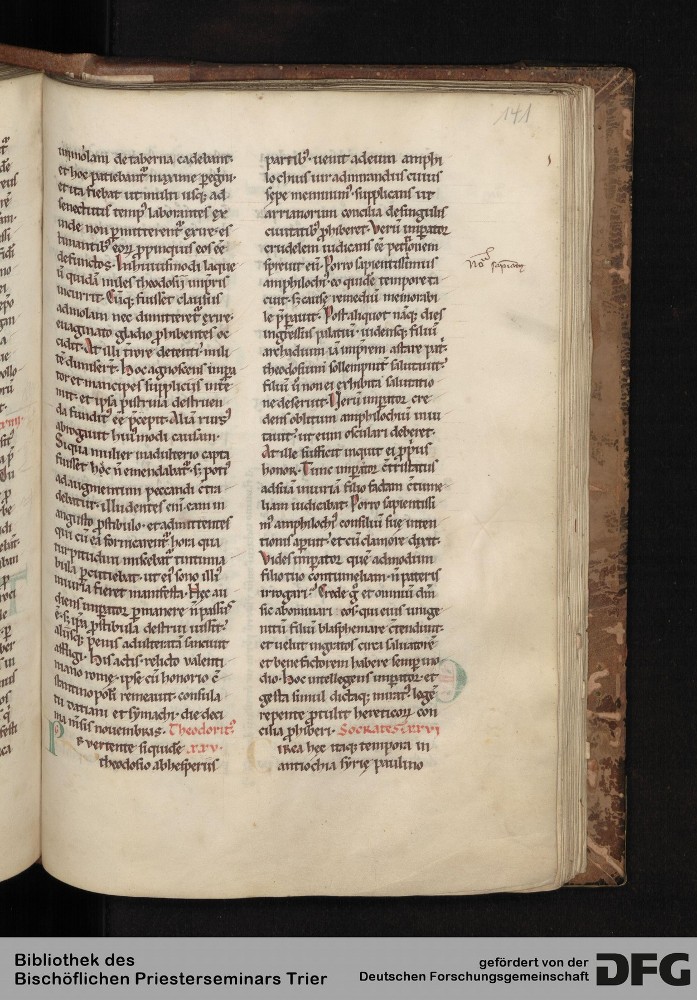 141
in molani de taberna cadebant·
et hoc patiebant᷑ maxime ꝑegⁱni·
et ita fiebat ut multi usq; ad
senectutis temp᷒ laborantes ex
inde non ꝑmitterent᷑ exire· es
timantib᷒ eoꝝ ꝓpinquis eos eē
defunctos· In huiusmodi laque
ū quidā miles theodosii imꝑris
incurrit· Cūq; fuisset clausus
ad molam nec dimitteret᷑ exire·
euaginato gladio ꝓhibentes oc
cidit· At illi tirore detenti mili
tē dimiserȷ̄· Hoc agnoscens impa
tor et mancipes suppliciis int̄e
mit· et ipsa pistrina destruen
da fundit᷒ eē p̄cepit· Aliā rurs᷒
abrogauit hui᷒modi causam·
Si qua mulier in adulterio capta
fuisset hoc n̄ emendabat᷑· s; poti᷒
ad augmentum peccandi ct̄ra
debatur· includentes eni᷒ eam in
angusto ꝓstibulo· et admittentes
qui cū ea fornicarent᷑· hora qua
turpitudini miscebat᷑ tintinna
bula ꝑcutiebat· ut ei᷒ sono illi᷒
iniuria fieret manifesta· Hęc au
diens imꝑator ꝑmanere n̄ passus
ē· s; ip̄a ꝓstibula destrui iussit·
aliisq; penis adulteratā sanciuit
affligi· His actis· relicto ualenti
niano rome· ipse cū honorio c̄
stantinopoli remeauit· consula
tu tatiani et symachi· die deci
ma m̄sis nouembris· Theodorit᷒
Reuertente siquidē ·xxv·
theodosio ab hesperiis
partib᷒· uenit ad eum amphi
lochius uir admirandus cuius
sepe meminim᷒· supplicans ut
arrianorum concilia de singulis
ciuitatib᷒ ꝓhiberet· Verū imꝑator
crudelem iudicans eē petitionem
spreuit eū· Porro sapientissimus
amphiloch᷒ eo quidē tempore ta
cuit· s; cause remediū memorabi
le p̄parauit· Post aliquot nāq; dies
ingressus palatiū· uidensq; filiū
archadium iā imꝑrem astare patⁱ·
theodosium sollempnit᷑ salutauit·
filiū ū non ei exhibita salutatio
ne deseruit· Verū imꝑator cre
dens oblitum amphilochiū inui
tauit· ut eum osculari deberet·
At ille sufficit inquit ei ꝓpri᷒
honor· Tunc imꝑator ct̄ristatus
ad suā iniuriā filio factam ct̄ume
liam iudicabat· Porro sapientissi
m᷒ amphiloch᷒ consiliū sue inten
tionis aperuit· et cū clamore dixit·
Vides imꝑator quēadmodum
filio tuo contumeliam· n̄ pateris
irrogari· Crede g᷒ et omniū dm̄
sic abominari· eos· qui eius unige
nitū filiū blasphemare ct̄endunt·
et uelut ingratos circa saluatorē
et bene factorem habere semp in o
dio· Hoc intellegens imperator· et
gesta simul dictaq; mirat᷒· legē
repente ꝓtulit hereticoꝝ con
cilia ꝓhiberi· Socrates· xxvi
Circa hec itaq; tempora in
antiochia syrię paulino
Bibliothek des
Bischöflichen Priesterseminars Trier
gefördert von der
Deutschen Forschungsgemeinschaft
DFG